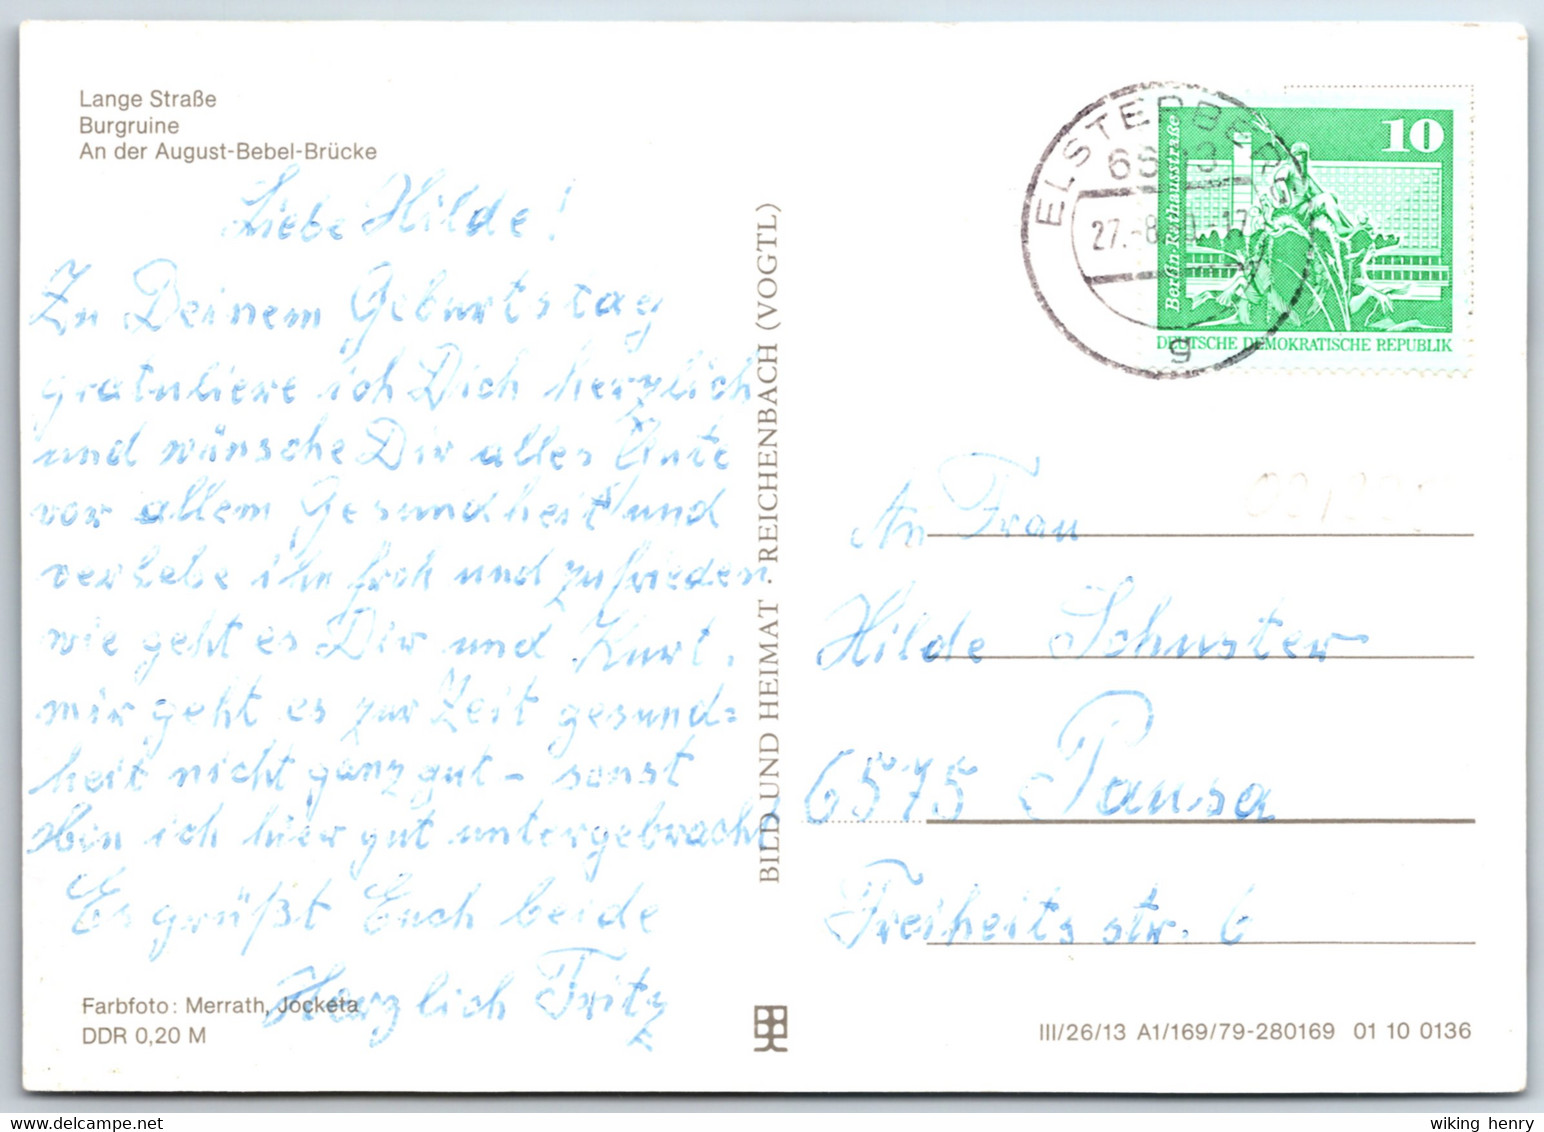 Lange Straße
Burgruine
An der August-Bebel-Brücke
Liebe Hilde!
Zu Deinem Geburtstag
gratuliere ich Dich herzlich
und wünsche Dir alles Gute
vor allem Gesundheit und
verlebe ihn froh und zufrieden
wie geht es Dir und Kurt,
mir geht es zur Zeit gesund=
heit nicht ganz gut – sonst
bin ich hier gut untergebracht
Es grüßt Euch beide
Herzlich Fritz
Farbfoto: Merrath, Jocketa
DDR 0,20 M
BILD UND HEIMAT · REICHENBACH (VOGTL)
ELSTERBERG
27.-8. 17
g
10
Berlin-Rathausstraße
DEUTSCHE DEMOKRATISCHE REPUBLIK
An Frau
Hilde Schuster
6575 Pausa
Freiheitsstr. 6
III/26/13 A1/169/79-280169 01 10 0136
wiking henry